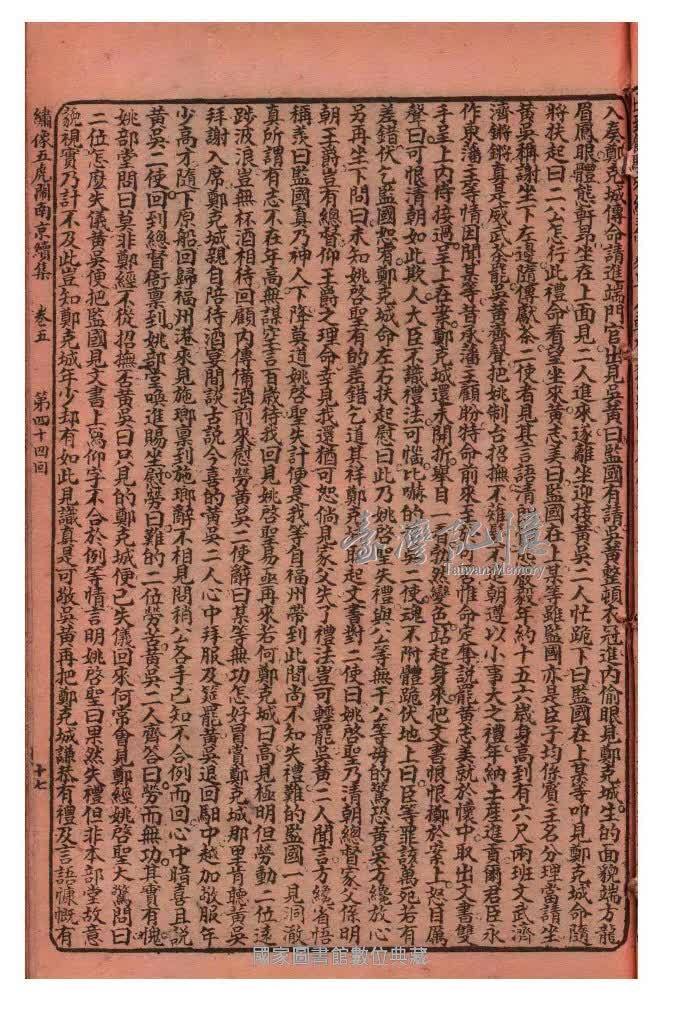 入奏鄭克𡒉傳命請進端門官出見吳黃曰監國有請吳黃整頓衣冠進內偷眼見鄭克𡒉生的面貌端方龍
眉鳳眼體態軒昂坐在上面見二人進來遂離坐迎接黃吳二人忙跪下曰監國在上某等叩見鄭克𡒉命隨
將扶起曰二公怎行此禮命看望坐來黃志美曰監國在上某等雖監國亦是臣子均係賓主名分理當請坐
黃吳稱謝坐下左邊隨傳獻茶二使者見其言語清朗 毅年約十五六歲身高到有六尺兩班文武濟
濟鏘鏘真是威武茶罷吳黃齊聲把姚制台招撫不 不 朝遵以小事大之禮年納土產進貢爾君臣永
作東藩王等情因聞某等昔承藩主顧盼特命前來 惟命定奪說罷黃志美就於懷中取出文書雙
手呈上內侍接過呈上在案鄭克𡒉還未開折舉目一看勃然變色站起身來把文書恨恨擲於案上怒目厲
聲曰可恨清朝如此欺人大臣不識禮法可惱 嚇的 二使魂不附體跪伏地上曰臣等罪該萬死若有
差錯伏乞監國恕宥鄭克𡒉命左右扶起慰曰此乃姚啓聖失禮與公等無干公等毋的驚恐黃吳方纔放心
另再坐下問曰未知姚啓聖有的差錯乞道其祥鄭克𡒉 起文書對二使曰姚啓聖乃清朝總督家父係明
朝王爵豈有總督仰王爵之理命幸見我還猶可恕倘見家父失了禮法豈可輕罷吳黃二人聞言方纔省悟
稱羨曰監國真乃神人下降莫道姚啓聖失計便是我等自福州帶到此間尚不知失禮難的監國一見洞澈
真所謂有志不在年高無謀空言百歲待我回見姚啓聖易函再來若何鄭克𡒉曰高見極明但勞動二位遠
踄波浪豈無杯酒相待回顧內傳備酒前來慰勞黃吳二使辭曰某等無功怎好冒賞鄭克𡒉那里肯聽黃吳
拜謝入席鄭克𡒉親自陪待酒宴間談古說今喜的黃吳二人心中拜服及筵罷黃吳退回馹中越加敬服年
少高才隨下原船回歸福州港來見施瑯稟到施瑯辭不相見問稍公各手已知不合例而回心中暗喜且說
黃吳二使回到總督衙稟到姚部堂喚進賜坐慰勞曰難的二位勞苦黃吳二人齊答曰勞而無功其實有愧
姚部堂問曰莫非鄭經不從招撫否黃吳曰只見的鄭克𡒉便已失儀回來何常會見鄭經姚啓聖大驚問曰
二位怎麼失儀黃吳便把監國見文書上寫仰字不合於例等情言明姚啓聖曰果然失禮但非本部堂故意
藐視實乃計不及此豈知鄭克𡒉年少却有如此見識真是可敬吳黃再把鄭克𡒉謙恭有禮及言語慷慨有
繡像五虎鬧南京續集 卷五 第四十四回 十七
臺灣記憶
Taiwan Memory
國家圖書館數位典藏